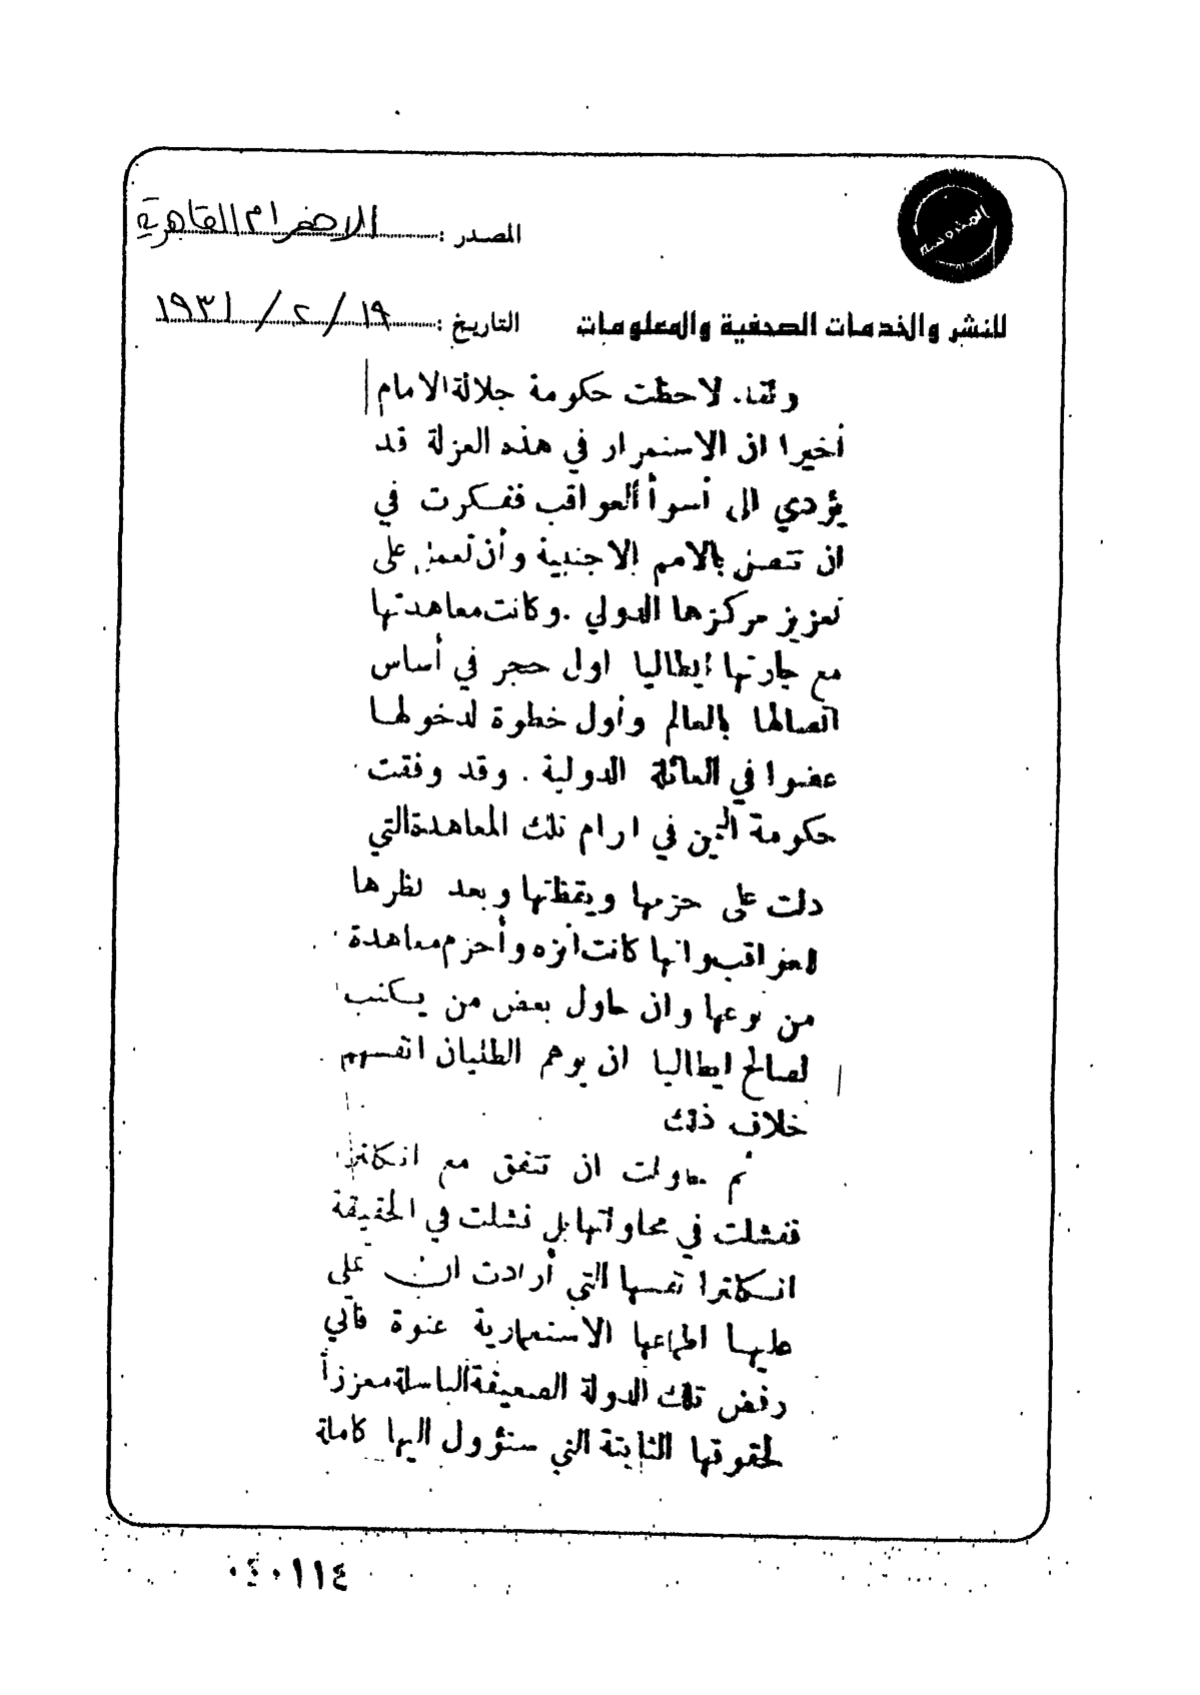 المصدر : الاهرام القاهرية
للنشر والخدمات الصحفية والمعلومات التاريخ : ١٩ / ٢ / ١٩٣١
ولقد لاحظت حكومة جلالة الامام
أخيرا ان الاستمرار في هذه العزلة قد
يؤدي الى أسوأ العواقب ففكرت في
ان تتصل بالامم الاجنبية وأن تعمل على
تعزيز مركزها الدولي . وكانت معاهدتها
مع جارتها ايطاليا اول حجر في أساس
اتصالها بالعالم وأول خطوة لدخولها
عضوا في العائلة الدولية . وقد وفقت
حكومة اليمن في ابرام تلك المعاهدة التي
دلت على حزمها ويقظتها وبعد نظرها
للعواقب وانها كانت أنزه وأحزم معاهدة
من نوعها وان حاول بعض من يكتب
لصالح ايطاليا ان يوهم الطليان انفسهم
خلاف ذلك
ثم حاولت ان تتفق مع انكلترا
ففشلت في محاولتها بل فشلت في الحقيقة
انكلترا نفسها التي أرادت ان على
عليها اطماعها الاستعمارية عنوة
رفض تلك الدولة الضعيفة الباسلة معززاً
لحقوقها الثابتة التي ستؤول اليها كاملة
٠٤٠١١٤